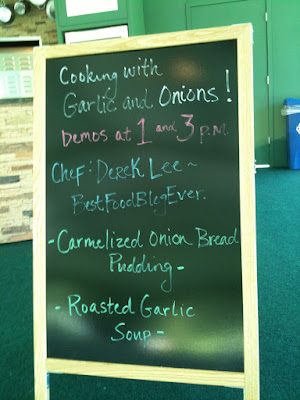 Cooking with
Garlic and Onions!
Demos at 1 and 3 p.m.
Chef: Derek Lee ~
BestFoodBlogEver.
- Carmelized Onion Bread
Pudding -
- Roasted Garlic
Soup -